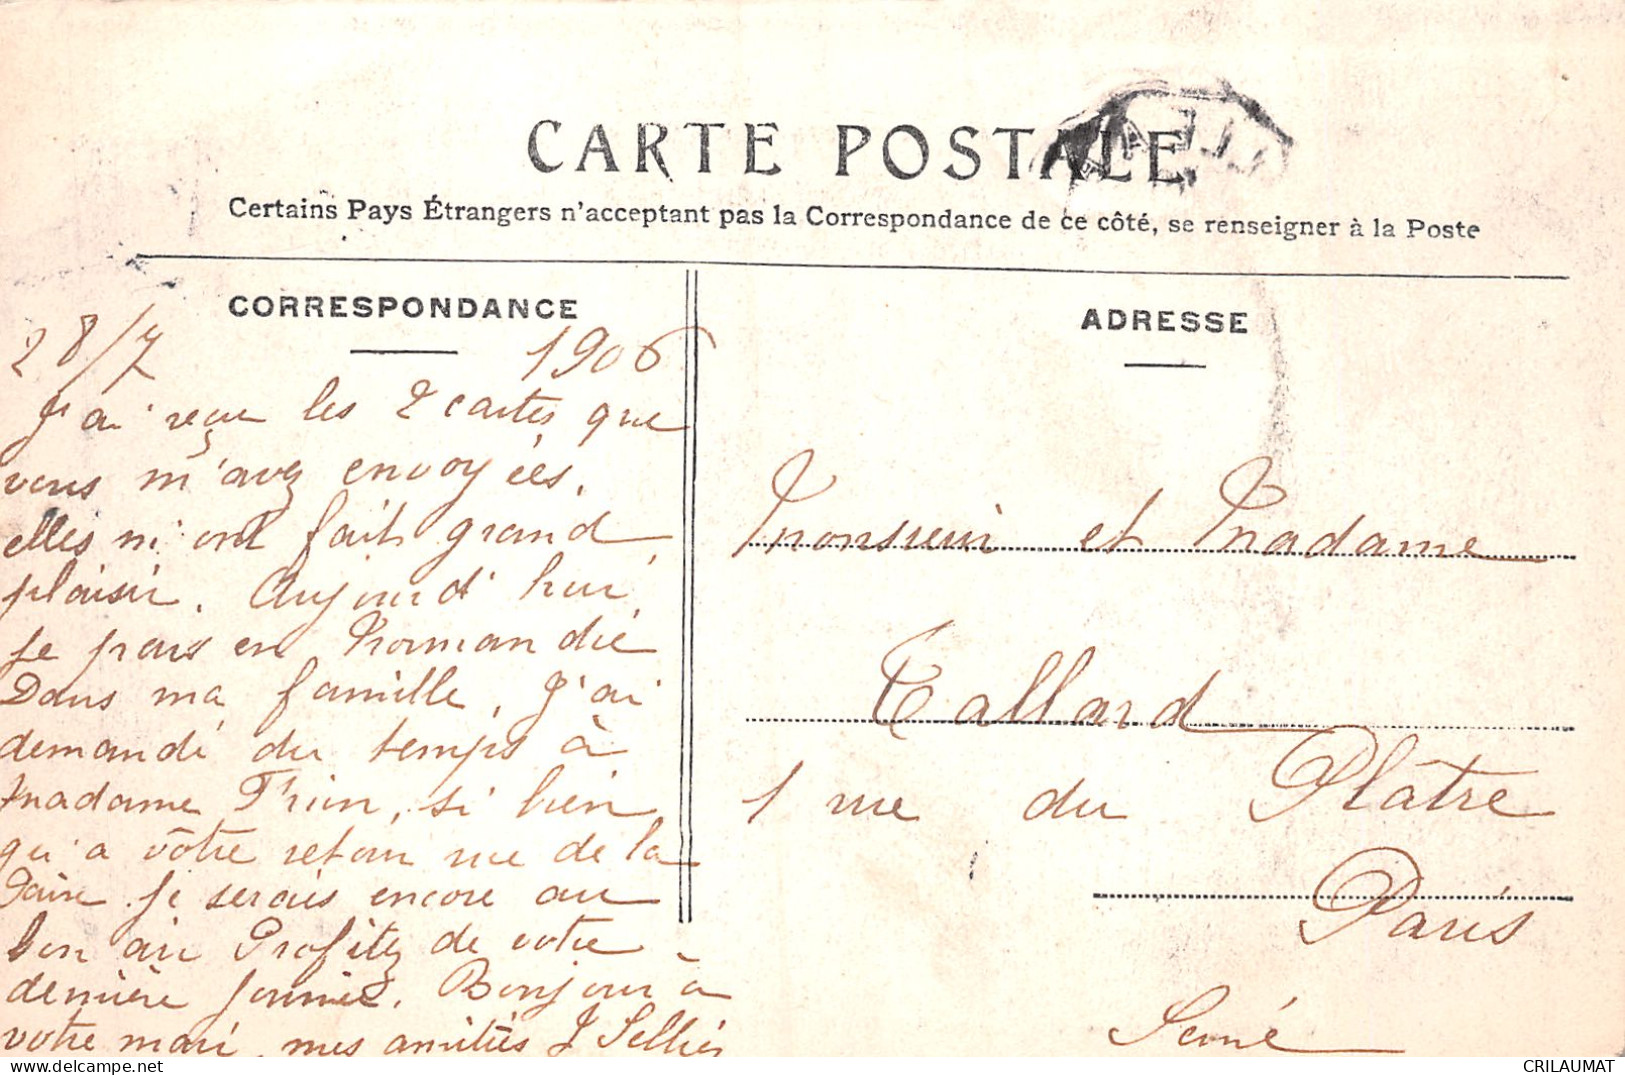 CARTE POSTALE
Certains Pays Étrangers n'acceptant pas la Correspondance de ce côté, se renseigner à la Poste
CORRESPONDANCE
28/7 1906
J'ai reçu les 2 cartes que
vous m'avez envoyées,
elles m'ont fait grand
plaisir. Aujourd'hui
je pars en Normandie
Dans ma famille, J'ai
demandé du temps à
Madame, si bien
qu'a vôtre retour rue de la
je serais encore au
bon air Profitez de votre
dernière journée. Bonjour à
votre mari, mes amitiés J Sellier
ADRESSE
Monsieur et Madame
Tallard
1 rue du Plâtre
Paris
Seine
CRILAUMAT